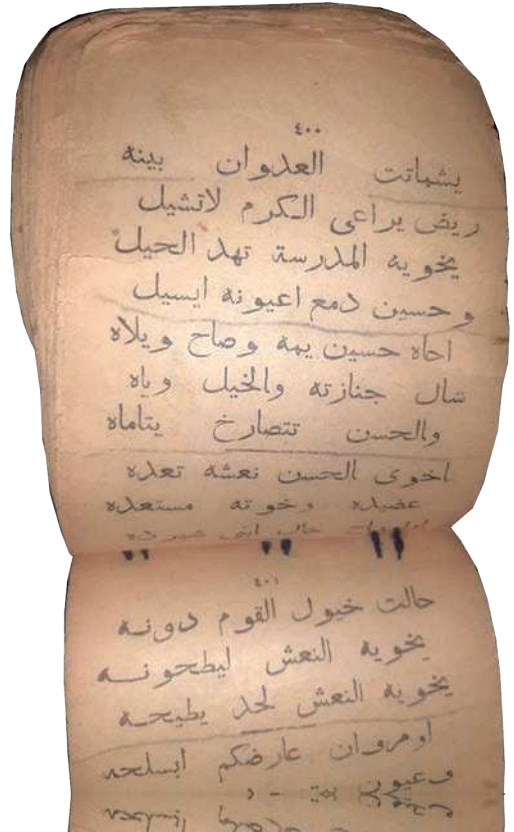 ٤٠٠
يشماتت العدوان بينه
ريض يراعي الكرم لاتشيل
يخويه المدرسة تهد الحيل
وحسين دمع اعيونه ايسيل
اجاه حسين يمه وصاح ويلاه
شال جنازته والخيل وياه
والحسن تتصارخ يتاماه
اخوي الحسن نعشه تعده
عضيده وخوته مستعده
٤٠١
حالت خيول القوم دونه
يخويه النعش ليطحونه
يخويه النعش لحد يطيحه
اومروان عارضكم ابسلحه
وعيون